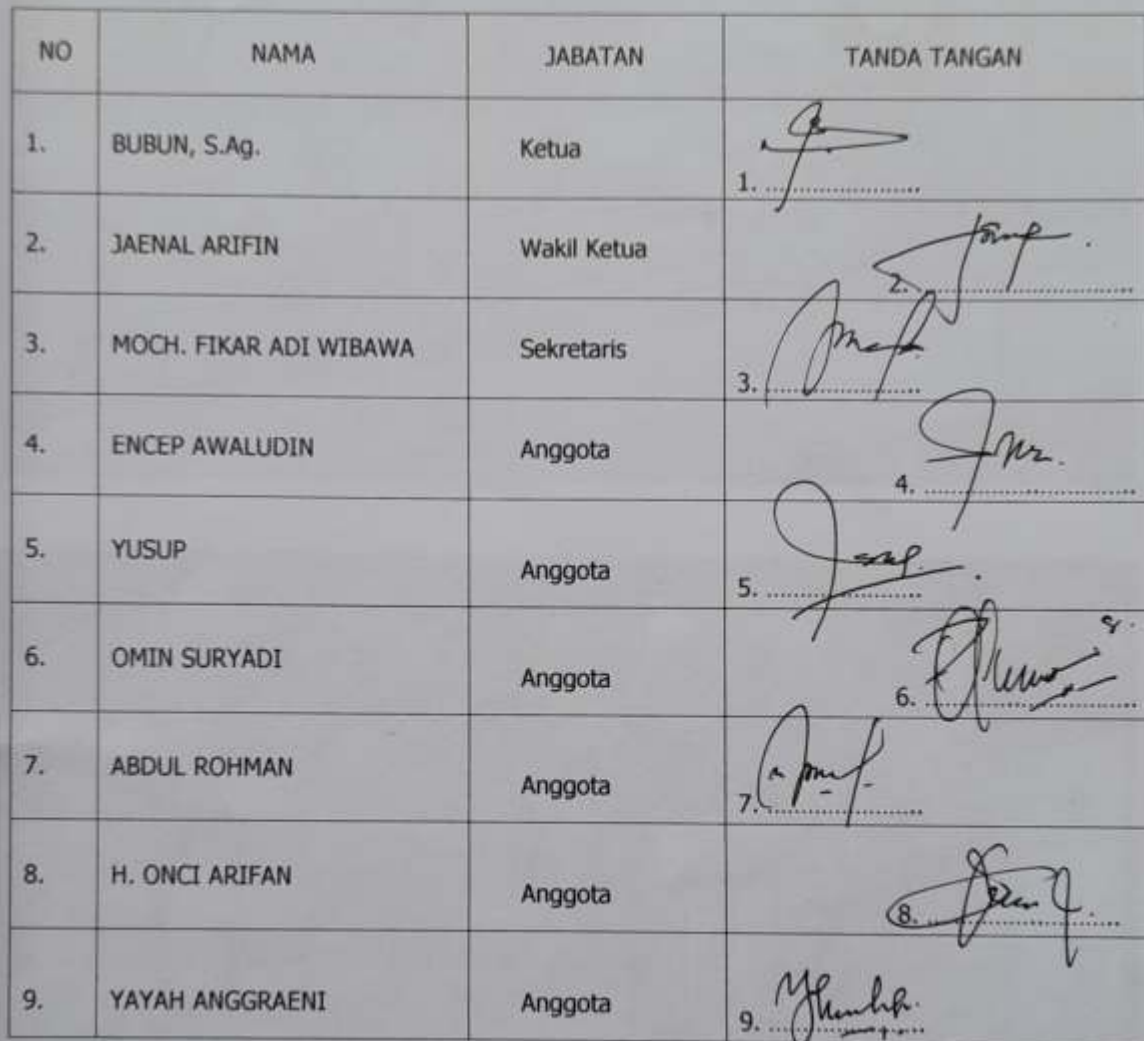 NO NAMA JABATAN TANDA TANGAN
1. BUBUN, S.Ag. Ketua 1. ....................
2. JAENAL ARIFIN Wakil Ketua 2. ....................
3. MOCH. FIKAR ADI WIBAWA Sekretaris 3. ....................
4. ENCEP AWALUDIN Anggota 4. ....................
5. YUSUP Anggota 5. ....................
6. OMIN SURYADI Anggota 6. ....................
7. ABDUL ROHMAN Anggota 7. ....................
8. H. ONCI ARIFAN Anggota 8. ....................
9. YAYAH ANGGRAENI Anggota 9. ....................